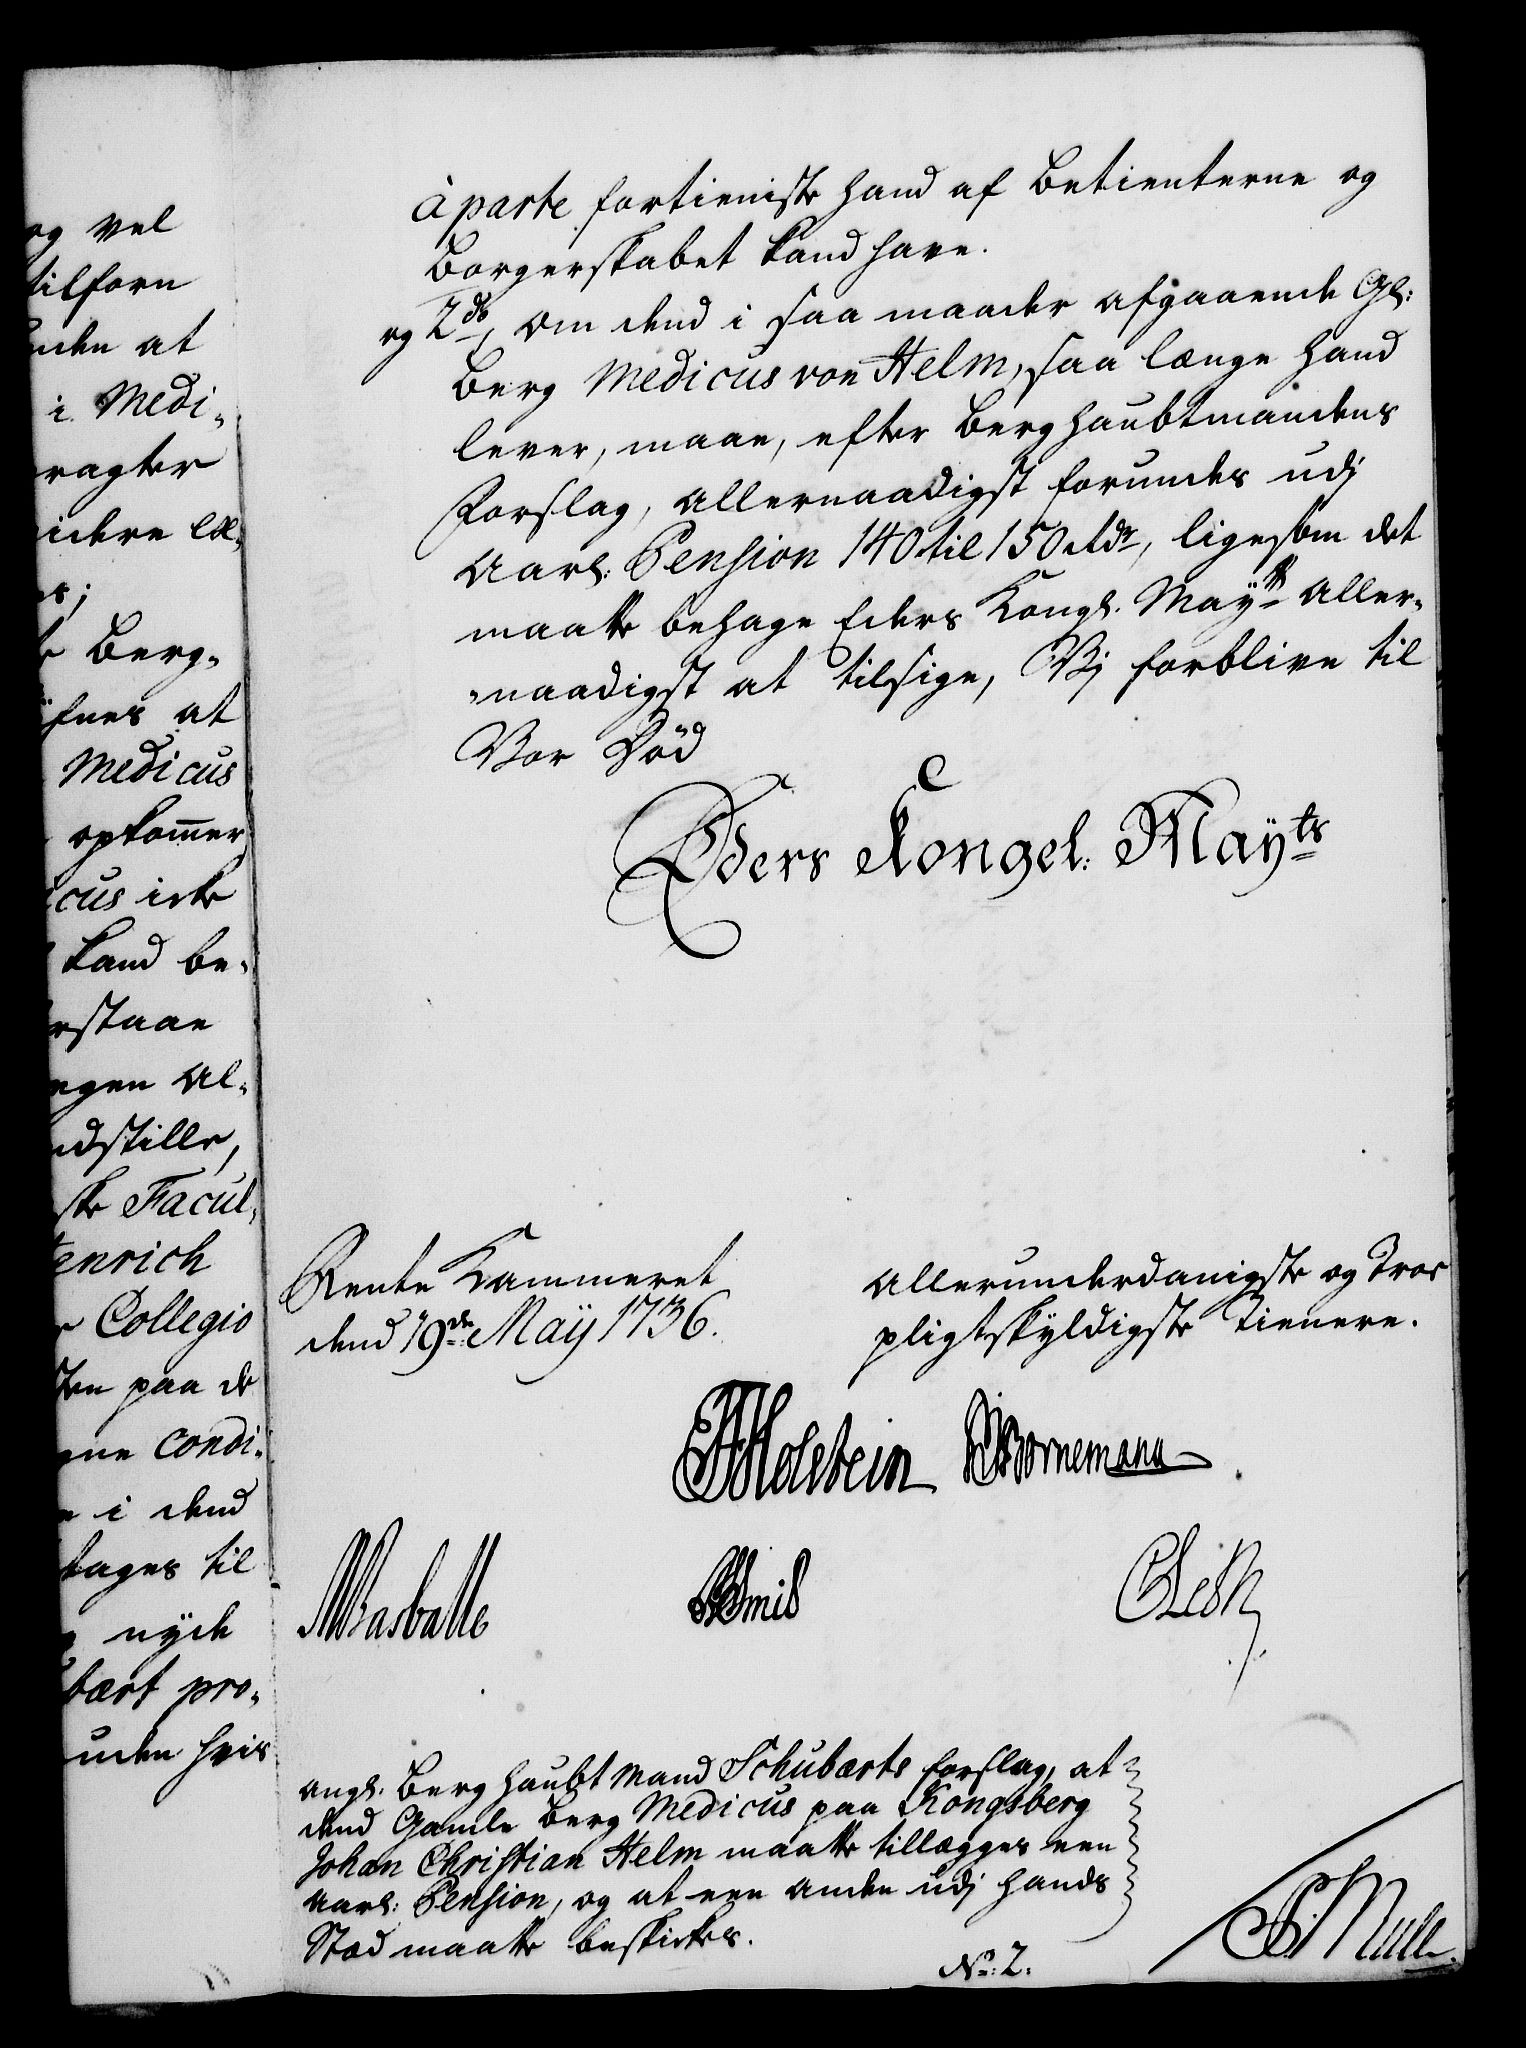 og vel
tilforn
nden at
i Medi-
ragter
videre Ex-
es;
Berg-
fnes at
Medicus
opkom̃er
icus icke
kand be-
rstaae
egen Al-
ndstille,
ske Facul-
enrich
Collegio
sten paa de
gne Condi-
i dend
tages til
nyde
bært pro-
uden hvis
à parte fortieniste hand af Betienterne og
Borgerskabet kand have.
og 2do, om dend i saa maader afgaaende Gl:
Berg Medicus von Helm, saa længe hand
lever, maae, efter Berghaubtmandens
Forslag, allernaadigst forundes udj
Aarl: Pension 140 til 150 Rdr, ligesom det
maatte behage Eders Kongl. Mayts Aller-
naadigst at tilsige, Vi forblive til
Vor Død
Eders Kongel: Mayts
Rente Kammeret
dend 19de Maÿ 1736.
allerunderdanigste og Troe
pligtskyldigste Tienere.
Holstein Bornemann
Basballe Smid
angl. Berg haubt Mand Schubærts forslag, at
dend Gamle Berg Medicus paa Kongsberg
Johan Christian Helm maatte tillægges een
Aarl: Pension, og at een anden udj hands
Stæd maatte beskickes.
No: 2.